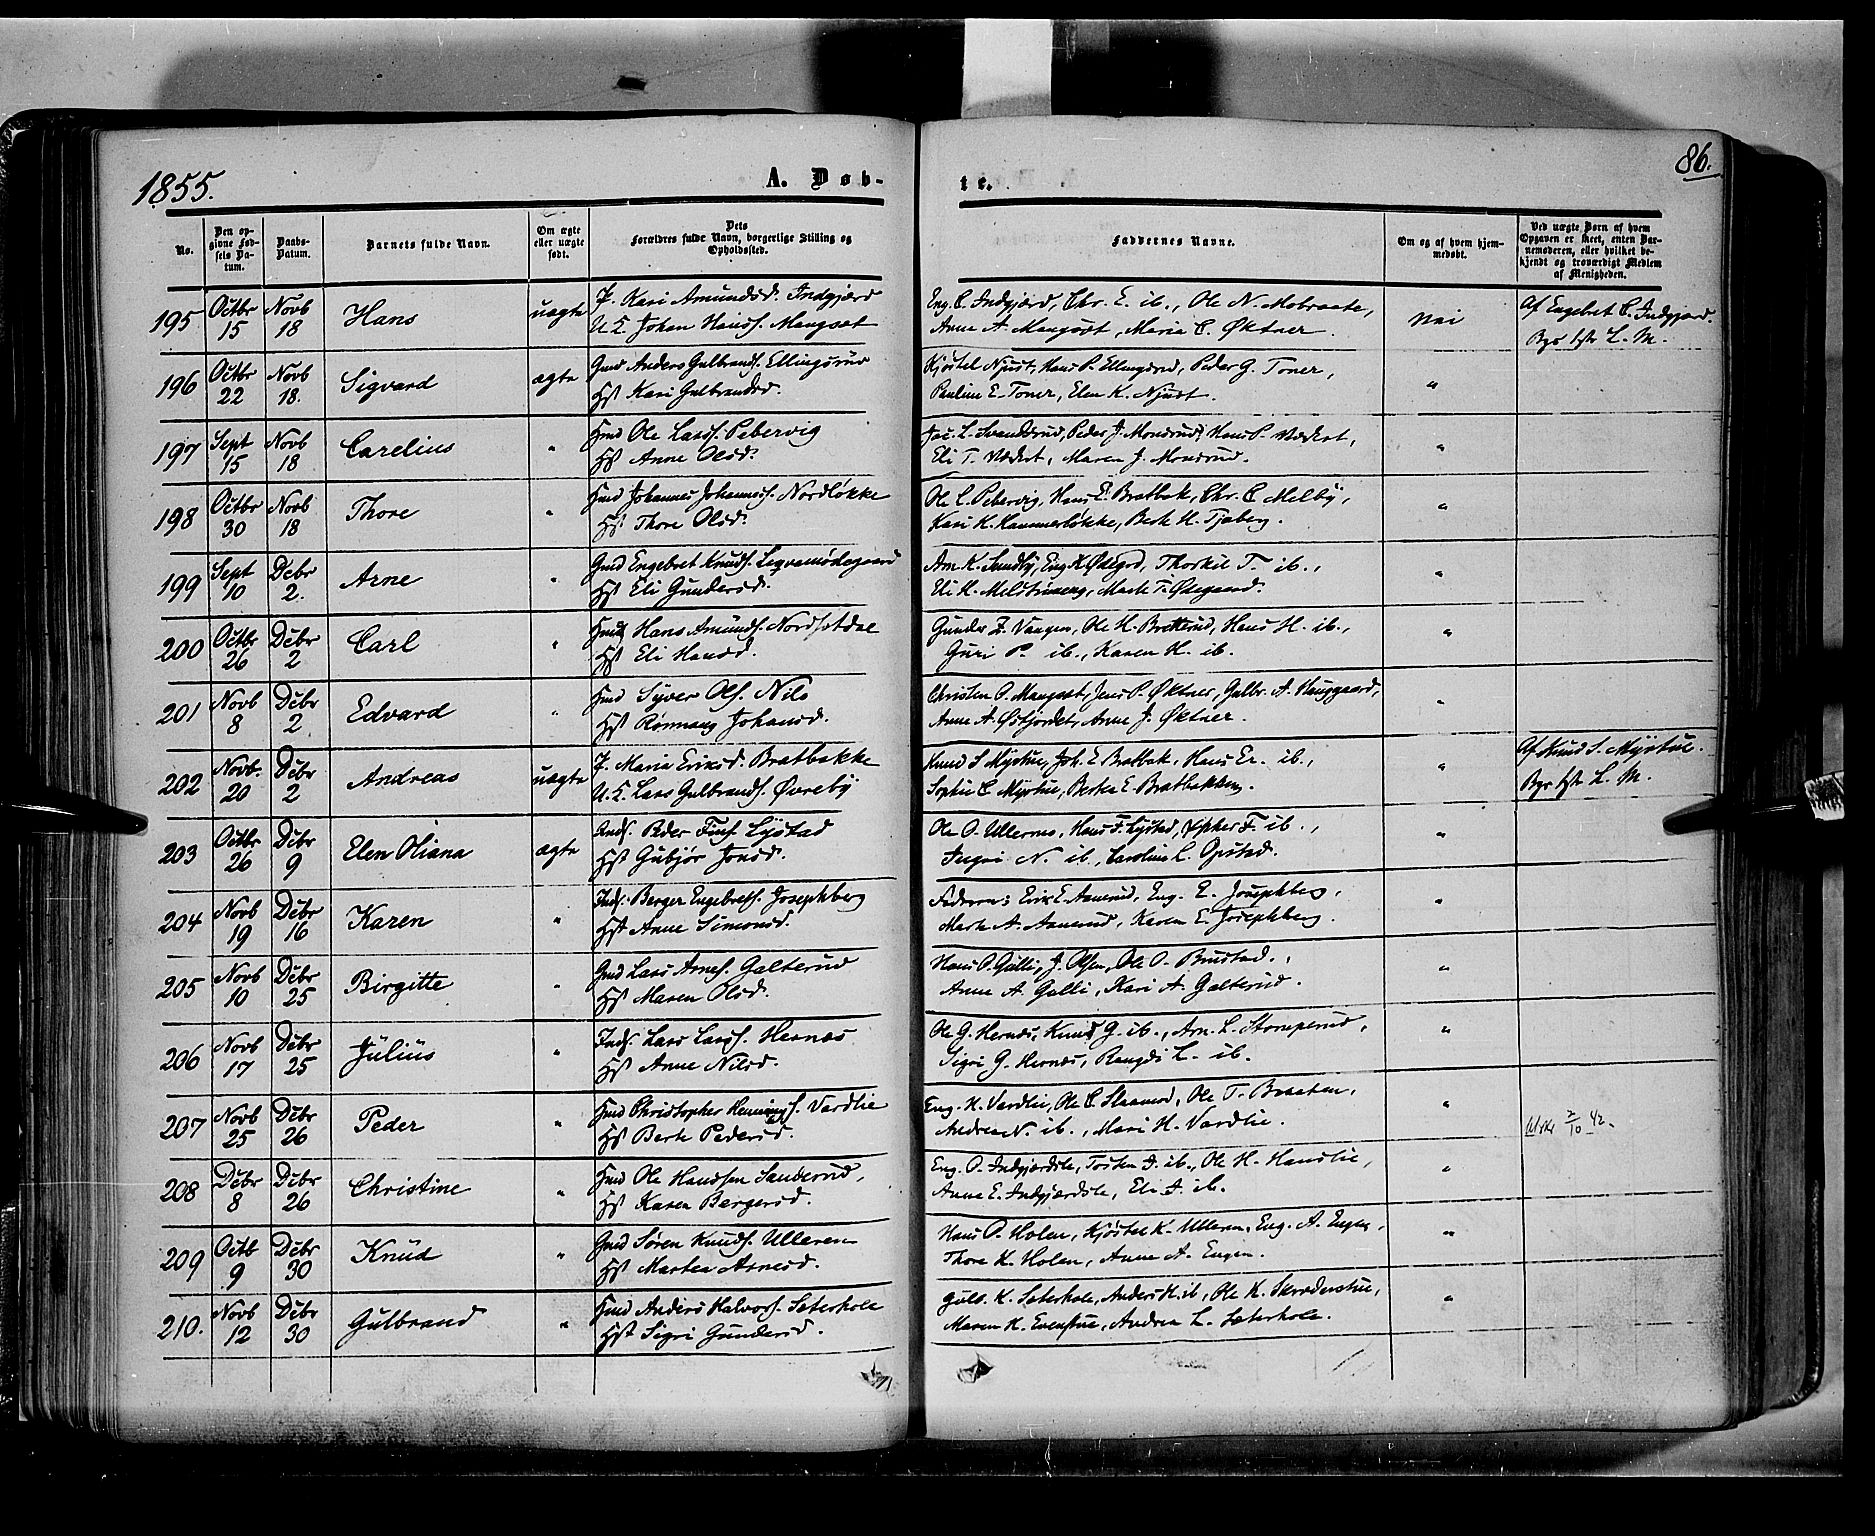 1855.
A. Døb-
te.
86.
No.
Den op-
givne Fød-
sels Da-
tum.
Daabs-
Datum.
Barnets fulde Navn.
Om ægte
eller uægte
født.
Dets
Forældres fulde Navn, borgerlige Stilling og
Opholdssted.
Faddernes Navne.
Om og af hvem hjem-
medøbt.
Ved uægte Børn af hvem
Opgaven er skeet, enten Bar-
nemoderen, eller hvilket be-
kjendt og troværdigt Medlem
af Menigheden.
195 Octbr 15 Novb 18 Hans uægte
P. Kari Amundsd. Indgjærd
U.K. Johan Hanss. Mangset
Eng. C. Indgjærd, Chr. E. ib., Ole N. Mobraate,
Anne A. Mangset, Maria C. Øktner.
Nei
Af Engebret C. Indgjærd.
L. M.
196 Octbr 22 Novb 18. Sigvard ægte
Gmd Anders Gulbrands. Ellingsrud
Hst Kari Gulbrandsd.
Kjøstel Njust, Hans P. Ellingsrud, Peder G. Toner,
Pauline E. Toner, Elen K. Njust.
"
197 Sept 15 Novb 18 Carelius "
Hmd Ole Larss. Pebervig
Hst Anne Olsd.
Jac. L. Svendsrud, Peder J. Monsrud, Hans P.
Eli T. Maren J. Monsrud.
"
198 Octbr 30 Novb 18 Thore "
Hmd Johannes Johanness. Nordløkke
Hst Thore Olsd.
Ole L. Pebervig, Hans E. Bratbak, Chr. C. Melby,
Kari K. Kammerløkke, Berte H. Tjaberg.
"
199 Sept 10 Debr 2. Arne "
Gmd Engebret Knuds.
Hst Eli Gundersd.
Arn. K. Sundby, Eng. K. Ødegrd, Thorkil T. ib.,
Eli H. Marte T. Ødegaard.
"
200 Octbr 26 Debr 2 Carl "
Hmd Hans Amunds. Nordsetdal
Hst Eli Hansd.
Gunder Z. Vangen, Ole H. Bratterud, Hans H. ib.,
Guri P. ib., Karen H. ib.
"
201 Novb 8 Debr 2 Edvard "
Hmd Syver Ols. Nilo
Hst Rønnaug Johansd.
Christen O. Mangset, Jens P. Øktner, Gulbr. A. Hauggaard,
Anne A. Østfjordet, Anne J. Øktner.
"
202 Novb. 20 Debr 2 Andreas uægte
P. Maria Eriksd. Bratbakke
U.K. Lars Gulbrands. Øvreby
Knud S. Myrstue, Joh. E. Bratbak, Hans Er. ib.,
Sophie C. Myrstue, Berthe E. Bratbakken.
"
Af Knud S. Myrstue.
L. M.
203 Octbr 26 Debr 9 Elen Oliana ægte
Inds. Peder Fins. Lystad
Hst Gubjør Jonsd.
Ole O. Ullernes, Hans F. Lystad, F. ib.,
Ingri N. ib., Caroline L. Opstad.
"
204 Novb 19 Debr 16 Karen "
Inds. Berger Engebrets. Josephberg
Hst Anne Simonsd.
Faderen: Erik E. Aanerud, Eng. E. Josephberg,
Marte A. Aanerud, Karen E. Josephberg.
"
205 Novb 10 Debr 25 Birgitte "
Gmd Lars Arnes. Galterud
Hst Maren Olsd.
Hans P. Gulli, J. Olsen, Ole O. Brustad.,
Anne A. Gulli, Kari A. Galterud.
"
206 Novb 17 Debr 25 Julius "
Inds. Lars Larss. Hernæs
Hst Anne Nilsd.
Ole G. Hernæs, Knud G. ib., Arn. L. Stomperud,
Sigri G. Hernæs, Rangdi L. ib.
"
207 Novb 25 Debr 26 Peder "
Hmd Christopher Hennings. Vardlie
Hst Berte Pedersd.
Eng. H. Vardlie, Ole C. Slaamod, Ole T. Braaten,
Andrea N. ib., Mari H. Vardlie.
"
2/10 42.
208 Debr 8 Debr 26 Christine "
Hmd Ole Handsen Sanderud,
Hst Karen Bergersd.
Eng. O. Indgjærdsle, Tosten J. ib., Ole H. Hanslie,
Anne E. Indgjærdsle, Eli J. ib.
"
209 Octb 9 Debr 30 Knud "
Gmd Søren Knuds. Ulleren
Hst Marthea Arnesd.
Hans O. Holen, Kjøstel K. Ulleren, Eng. A. Engen,
Thore K. Holen, Anne A. Engen.
"
210. Novb 12 Debr 30 Gulbrand "
Hmd Anders Halvors. Sæterhole
Hst Sigri Gundersd.
Gulb. K. Sæterhole, Anders H. ib, Ole K. Skredderstue,
Maren K. Evenstue, Andrea L. Sæterhole.
"